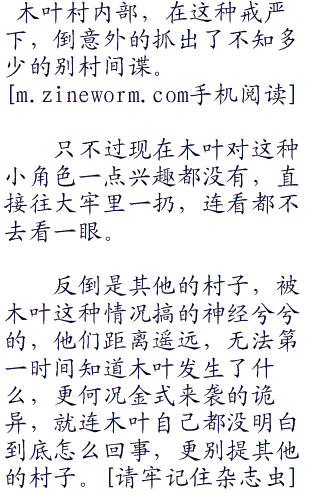 木叶村内部，在这种戒严
下，倒意外的抓出了不知多
少的别村间谍。
[m.zineworm.com手机阅读]
只不过现在木叶对这种
小角色一点兴趣都没有，直
接往大牢里一扔，连看都不
去看一眼。
反倒是其他的村子，被
木叶这种情况搞的神经兮兮
的，他们距离遥远，无法第
一时间知道木叶发生了什
么，更何况金式来袭的诡
异，就连木叶自己都没明白
到底怎么回事，更别提其他
的村子。[请牢记住杂志虫]